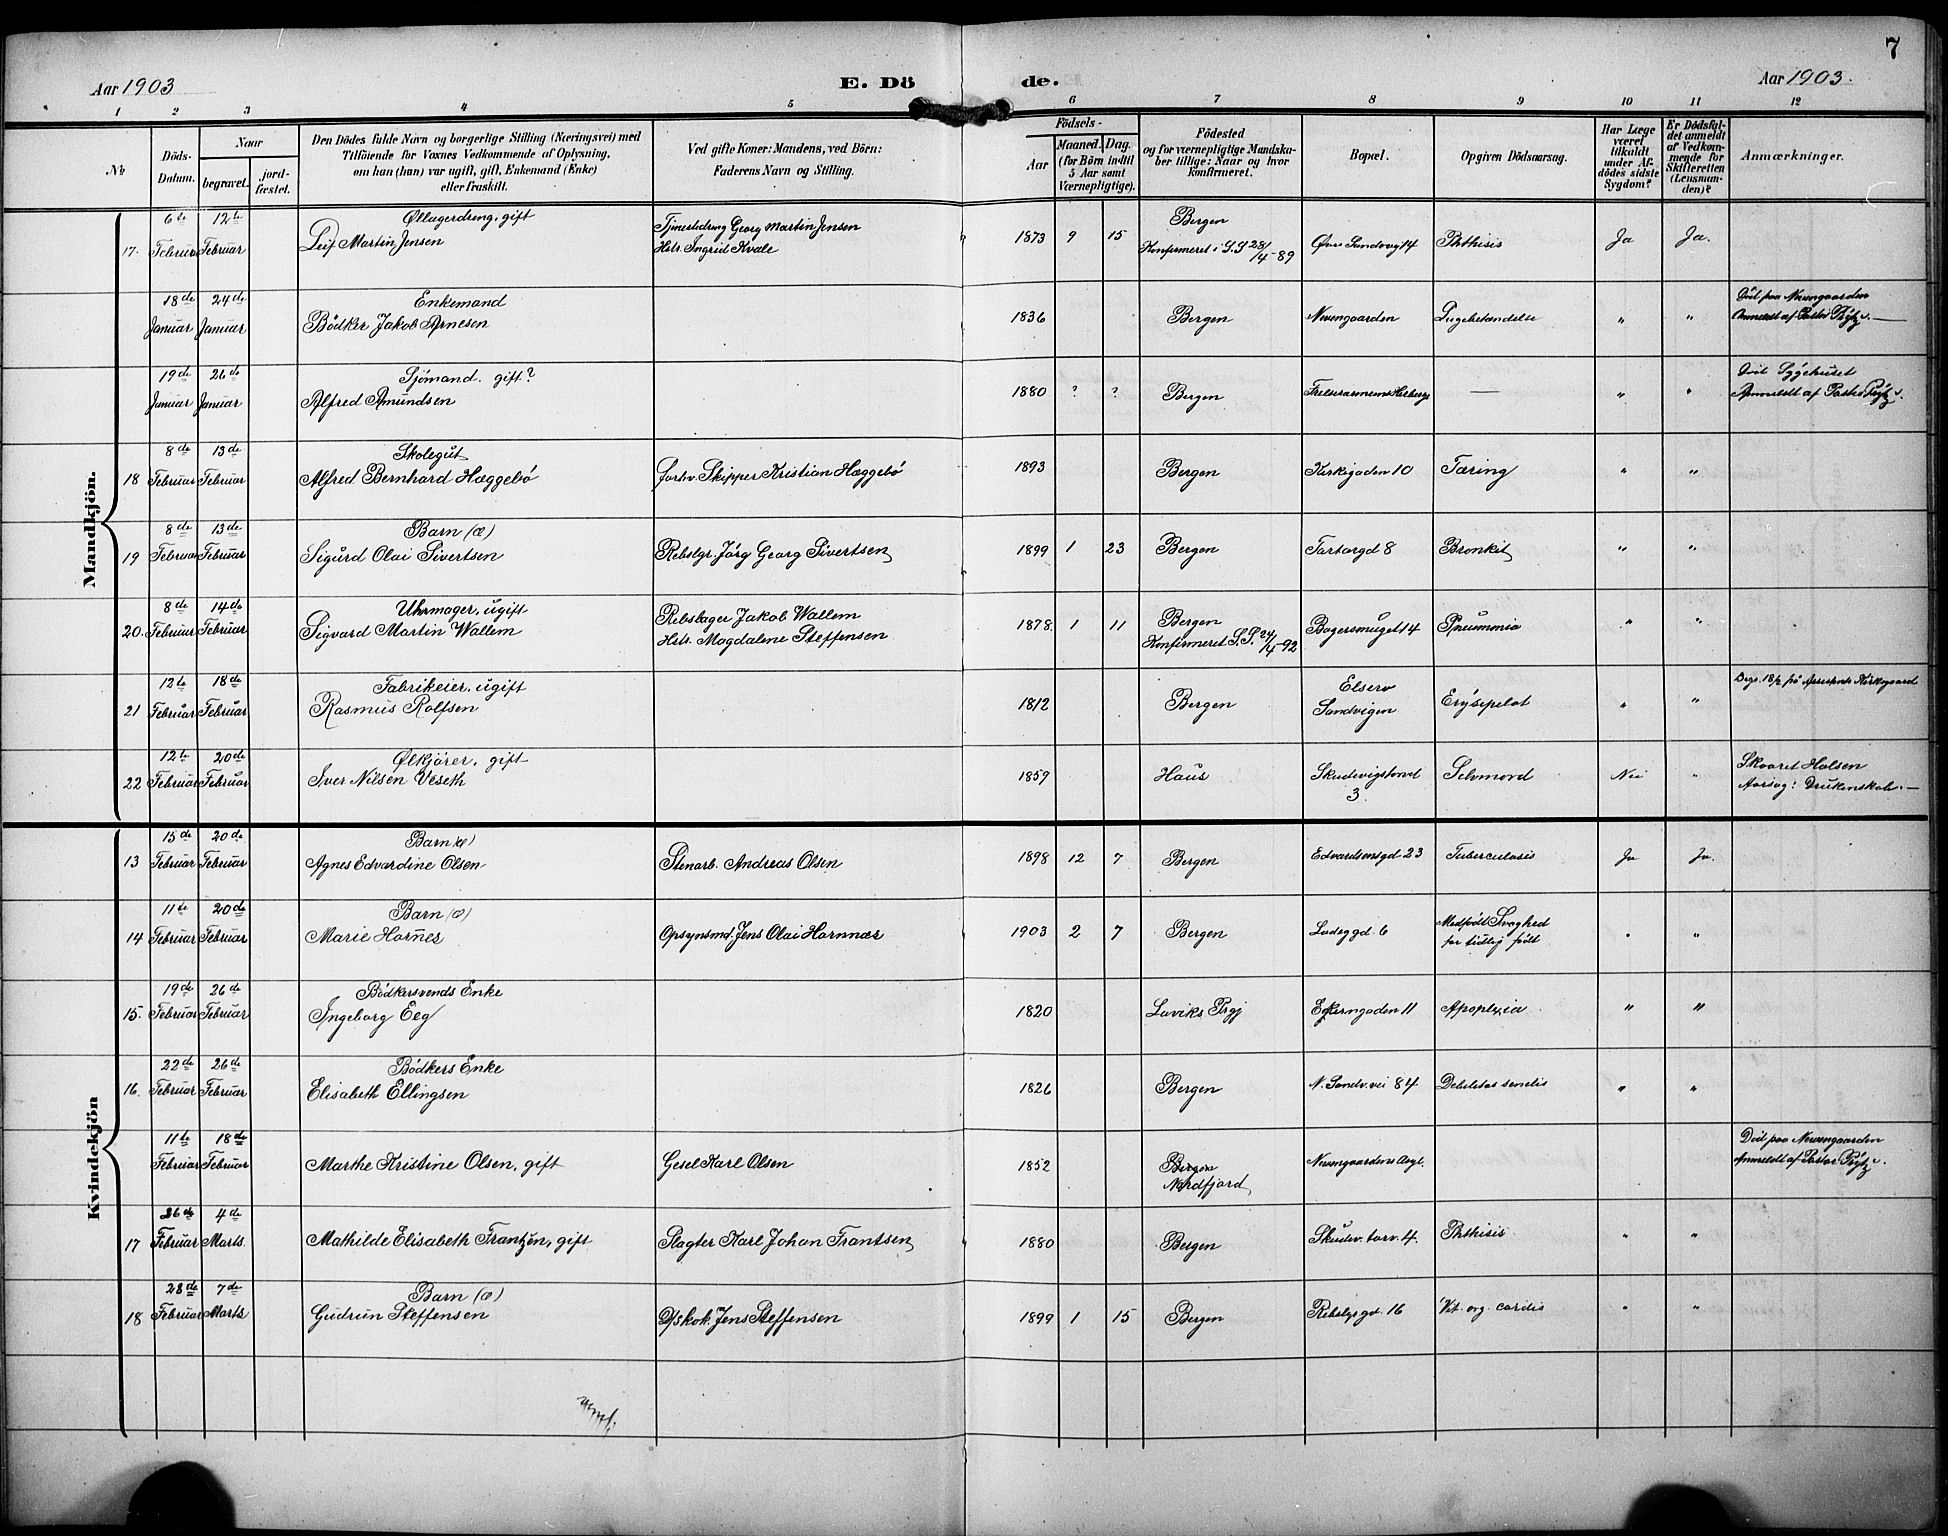 7
Aar 1903
E. Dö de.
Aar 1903.
1 2 3 4 5 6 7 8 9 10 11 12
No
Döds-Datum.
Naar
begravet.
jord-fæstet.
Den Dödes fulde Navn og borgerlige Stilling (Næringsvei) med
Tilföiende for Voxnes Vedkommende af Oplysning,
om han (hun) var ugift, gift, Enkemand (Enke)
eller fraskilt.
Ved gifte Koner: Mandens, ved Börn:
Faderens Navn og Stilling.
Födsels-
Aar
Maaned. Dag.
(for Börn indtil
5 Aar samt
Værnepligtige).
Födested
og for værnepligtige Mandska-
ber tillige: Naar og hvor
konfirmeret.
Bopæl.
Opgiven Dödsaarsag.
Har Læge
været
tilkaldt
under Af-
dödes sidste
Sygdom?
Er Dödsfal-
det anmeldt
af Vedkom-
mende for
Skifteretten
(Lensman-
den)?
Anmærkninger.
Mandkjön.
6te 12te Øllagerdreng, gift Tjenestedreng Georg Martin Jensen Bergen
17. Februar Februar Leif Martin Jensen Hst. Ingrid Kvale 1873 9 15 Konfirmeret i S.S 28/4-89 Øvre Sandvig 14 Phthisis Ja Ja.
18de 24de Enkemand Död paa Nevengaarden
Januar Januar Bödker Jakob Arnesen 1836 Bergen Nevengaarden Lugebetændelse " " Anmeldt af Pastor Prÿtz.
19de 26de Sjömand. gift? Död Sygehuset
Januar Januar Alfred Amundsen 1880 ? ? Bergen Frelsesarmeens Herberge — " " Anmeldt af Pastor Prÿtz.
8de 13de Skolegut
18 Februar Februar Alfred Bernhard Hæggebö forhv. Skipper Kristian Hæggebö 1893 Bergen Kirkegaden 10 Tæring " "
8de 13de Barn (æ)
19 Februar Februar Sigurd Olai Sivertsen Rebslgr. Jörg Georg Sivertsen 1899 1 23 Bergen Tartargd 8 Bronkit " "
8de 14de Uhrmager, ugift Rebslager Jakob Wallem Bergen
20. Februar Februar Sigvard Martin Wallem Hst. Magdalene Steffensen 1878. 1 11 Konfirmeret S.S. 24/4-92 Bagersmuget 14 Pneumonia " "
12te 18de Fabrikeier, ugift Elsero Begr. 18/2 på Assistents Kirkegaard
21 Februar Februar Rasmus Rolfsen 1812 Bergen Sandvigen Erysipelas " "
12te 20de Ølkjører, gift Skaaret Halsen
22 Februar Februar Iver Nilsen Veseth 1859 Haus Skudevigstorvet 3. Selvmord Nei " Aarsag: Drukenskab.
Kvindekjön
15de 20de Barn (æ)
13 Februar Februar Agnes Edvardine Olsen Stenarb. Andreas Olsen 1898 12 7 Bergen Edvardsensgd 23 Tuberculosis Ja Ja.
11te 20de Barn (æ) Medfödt Svaghed
14 Februar Februar Marie Hornes Opsynsmd. Jens Olai Hornnæs 1903 2 7 Bergen Ladeggd. 6 for tidlig födt " "
19de 26de Bödkersvends Enke
15. Februar Februar Ingeborg Eeg 1820 Laviks Prgj Ekerngaden 11 Apoplexia " "
22de 26de Bödkers Enke
16. Februar Februar Elisabeth Ellingsen 1826 Bergen N. Sandv. vei 84 Debilitas senilis " "
11te 18de Död paa Nevengaarden
Februar Februar Marthe Kristine Olsen, gift Gesel Karl Olsen 1852 Bergen Nevengaardens Asyl. Anmeldt af Pastor Prÿtz.
Nordfjord
26de 4de
17 Februar Marts. Mathilde Elisabeth Frantzen, gift Slagter Karl Johan Frantsen 1880 Bergen Skudev. torv. 4. Phthisis " "
28de 7de Barn (æ)
18 Februar Marts Gudrun Steffensen Dskok. Jens Steffensen 1899 1 15 Bergen Rebslgs gd. 16 Vit. org. cordis " "